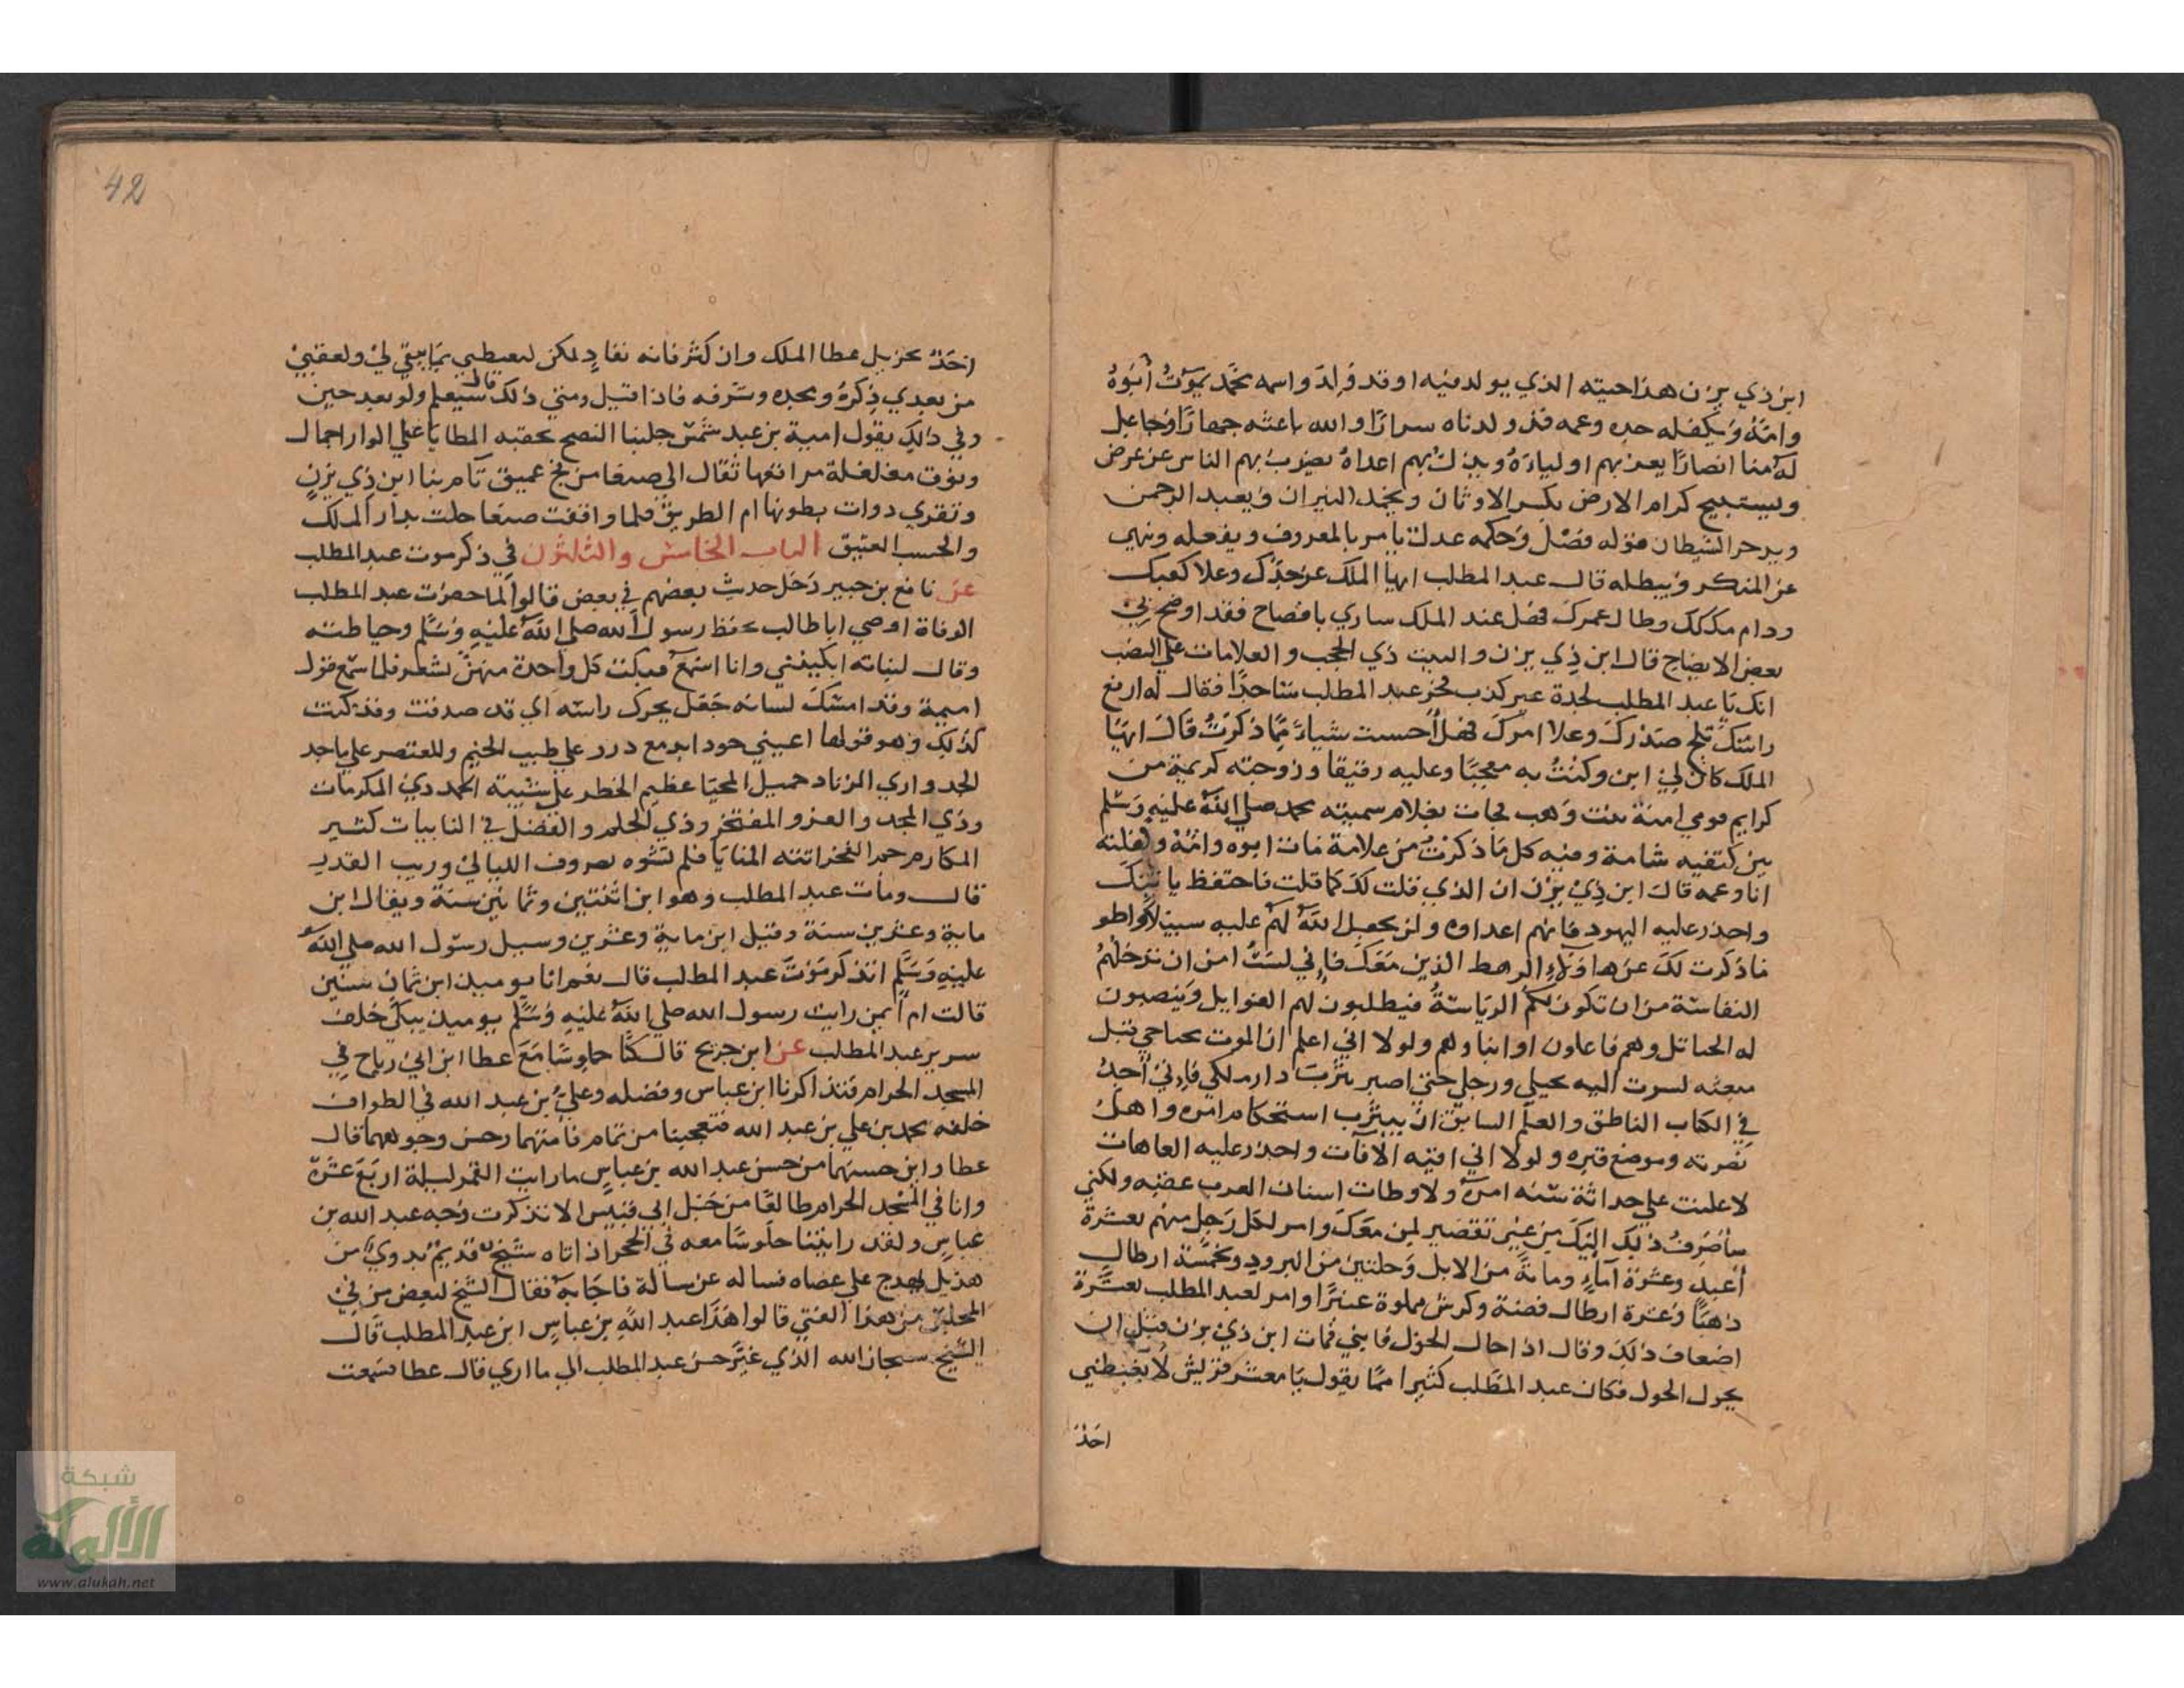 ابن ذي يزن هذا حينه الذي يولد فيه او قد ولد واسمه محمد يموت أبوه
وامه ويكفله جده وعمه قد ولدناه سرارًا والله باعثه جهارًا وجاعل
له منا انصارًا يعز بهم اولياءه ويذل بهم اعداه يضرب بهم الناس عن عرض
ويستبيح كرام الارض يكسر الاوثان ويخمد النيران ويعبد الرحمن
ويدحر الشيطان قوله فصل وحكمه عدل يامر بالمعروف ويفعله وينهي
عن المنكر ويبطله قال عبد المطلب ايها الملك عز جدك وعلا كعبك
ودام ملكك وطال عمرك فهل عند الملك ساري بافصاح فقد اوضح لي
بعض الايضاح قال ابن ذي يزن والبيت ذي الحجب والعلامات علي النصب
انك يا عبد المطلب لجده غير كذب فخر عبد المطلب ساجدًا فقال له ارفع
راسك ثلج صدرك وعلا امرك فهل أحسست شياء مما ذكرت قال ايها
الملك كان لي ابن وكنت به معجبًا وعليه رفيقا وزوجته كريمة من
كرايم قومي امنة بنت وهب فجات بغلام سميته محمد صلي الله عليه وسلم
بين كتفيه شامة وفيه كل ما ذكرت من علامة مات ابوه وامه وكفلته
انا وعمه قال ابن ذي يزن ان الذي قلت لك كما قلت فاحتفظ يا بنك
واحذر عليه اليهود فانهم اعداوه ولن يجعل الله لهم عليه سبيلا واطو
ماذكرت لك عن هاولاء الرهط الذين معك فاني لست امن ان تدخلهم
النفاسة من ان تكون لكم الرياسة فيطلبون لهم الغوايل وينصبون
له الحبائل وهم فاعلون او ابناوهم ولولا اني اعلم ان الموت مجتاحي قبل
مبعثه لسرت اليه بخيلي ورجلي حتي اصير بيثرب دار ملكي فاني أجد
في الكتاب الناطق والعلم السابق ان بيثرب استحكام امره واهل
نصرته وموضع قبره ولولا اني اقيه الافات واحذر عليه العاهات
لاعلنت علي حداثة سنه امره ولاوطات اسنان العرب عقبه ولكني
سأصرف ذلك اليك من غير تقصير لمن معك وامر لكل رجل منهم بعشرة
أعبد وعشرة آماء ومائة من الابل وحلتين من البرود وبخمسة ارطال
ذهبًا وعشرة ارطال فضة وكرش مملوة عنبرًا وامر لعبد المطلب بعشرة
اضعاف ذلك وقال اذا حال الحول فايتني فمات ابن ذي يزن قبل ان
يحول الحول فكان عبد المطلب كثيرا مما يقول يا معشر قريش لا يغبطني
احد
42
احد بجزيل عطا الملك وان كثر فانه نفاد لكن ليغبطني بما يبقي لي ولعقبي
من بعدي ذكره ومجده وشرفه فاذا قيل ومتي ذلك قال سيعلم ولو بعد حين
وفي ذلك يقول امية بن عبد شمس جلبنا النصح بحقبه المطايا علي الوار اجمال
ونوق مغلغلة مراتعها ثقال الي صنعا من فج عميق تأم بنا ابن ذي يزن
وتقري دوات بطونها ام الطريق فلما وافقت صنعا حلت بدار الملك
والحسب العتيق الباب الخامس والثلثون في ذكر موت عبد المطلب
عن نافع بن جبير دخل حديث بعضهم في بعض قالوا لما حضرت عبد المطلب
الوفاة اوصي ابا طالب بحفظ رسول الله صلي الله عليه وسلم وحياطته
وقال لبناته ابكينني وانا اسمع فبكت كل واحدة منهن بشعر فلما سمع قول
اميمة وقد امسك لسانه جعل يحرك راسه اي قد صدقت وقد كنت
كذلك وهو قولها اعيني جودا بدمع درر علي طيب الخيم والمعتصر علي ماجد
الجد واري الزناد جميل المحيا عظيم الخطر علي شيبة الحمد ذي المكرمات
وذي المجد والعز والمفتخر وذي الحلم والفضل في النايبات كثير
المكارم جم الفخر اتته المنايا فلم تشوه بصروف الليالي وريب القدر
قال ومات عبد المطلب وهو ابن اثنتين وثمانين سنة ويقال ابن
ماية وعشرين سنة وقيل ابن ماية وعشرين وسيل رسول الله صلي الله
عليه وسلم اتذكر موت عبد المطلب قال نعم انا يوميذ ابن ثمان سنين
قالت ام ايمن رايت رسول الله صلي الله عليه وسلم يوميذ يبكي خلف
سرير عبد المطلب عن ابن جريج قال كنا جلوسًا مع عطا ابن ابي رباح في
المسجد الحرام فتذاكرنا ابن عباس وفضله وعلي بن عبد الله في الطواف
خلفه محمد بن علي بن عبد الله فتعجبنا من تمام قامتهما وحسن وجوههما قال
عطا واين حسنهما من حسن عبد الله بن عباس ما رايت القمر ليلة اربع عشرة
وانا في المسجد الحرام طالعًا من جبل ابي قبيس الا تذكرت وجه عبد الله بن
عباس ولقد رايتنا جلوسًا معه في الحجر اذ اتاه شيخ قديم بدوي من
هذيل يهدج علي عصاه فساله عن مسالة فاجابه فقال الشيخ لبعض من في
المجلس من هذا الفتي قالوا هذا عبد الله بن عباس ابن عبد المطلب قال
الشيخ سبحان الله الذي غير حسن عبد المطلب الي ما اري قال عطا فسمعت
شبكة
الألوكة
www.alukah.net